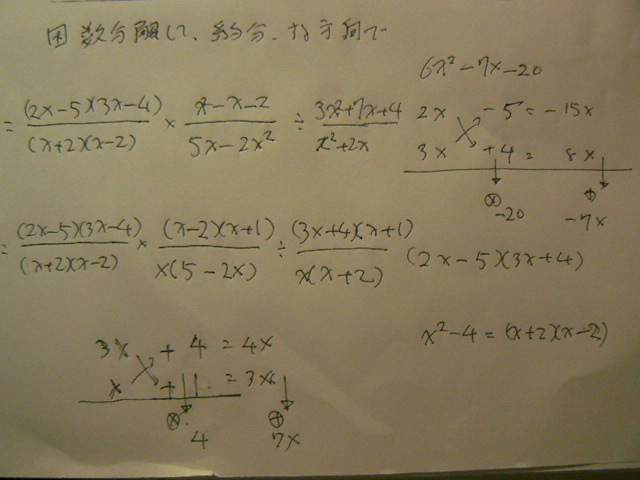 因数分解して、約分、な方向で
6x²-7x-20
= (2x-5)(3x-4)/(x+2)(x-2) × x²-x-2/5x-2x² ÷ 3x²+7x+4/x²+2x
2x -5 = -15x
3x +4 = 8x
⊗ -20 ⊕ -7x
= (2x-5)(3x-4)/(x+2)(x-2) × (x-2)(x+1)/x(5-2x) ÷ (3x+4)(x+1)/x(x+2)
(2x-5)(3x+4)
x²-4=(x+2)(x-2)
3x +4 = 4x
x +1 = 3x
⊗ 4 ⊕ 7x